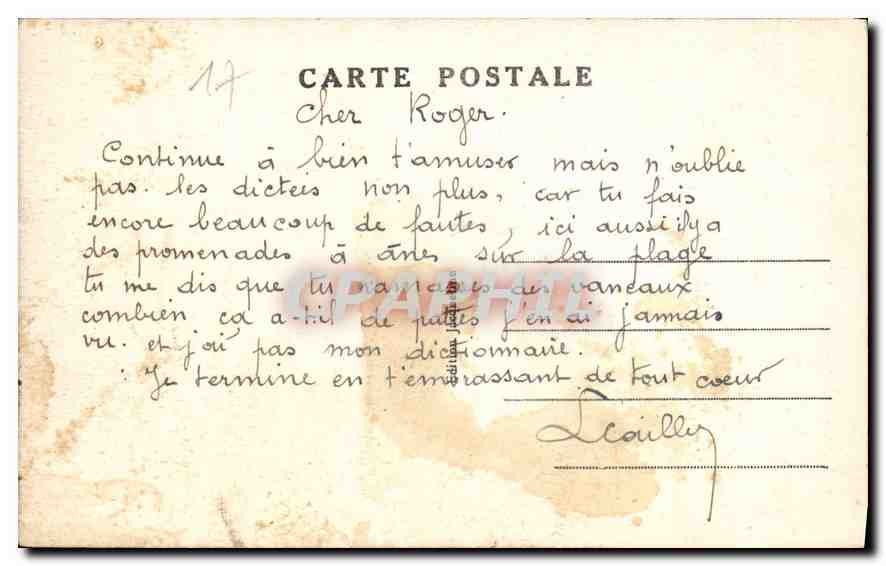 17
CARTE POSTALE
Cher Roger.
Continue à bien t'amuser mais n'oublie
pas. les dictées non plus, car tu fais
encore beaucoup de fautes, ici aussi il y a
des promenades à ânes sur la plage
tu me dis que tu ramasses des vaneaux
combien ça a-t-il de pattes j'en ai jamnais
vu. et j'ai pas mon dictionnaire.
Je termine en t'embrassant de tout coeur
CPAPHIL
Edition Jacqueline